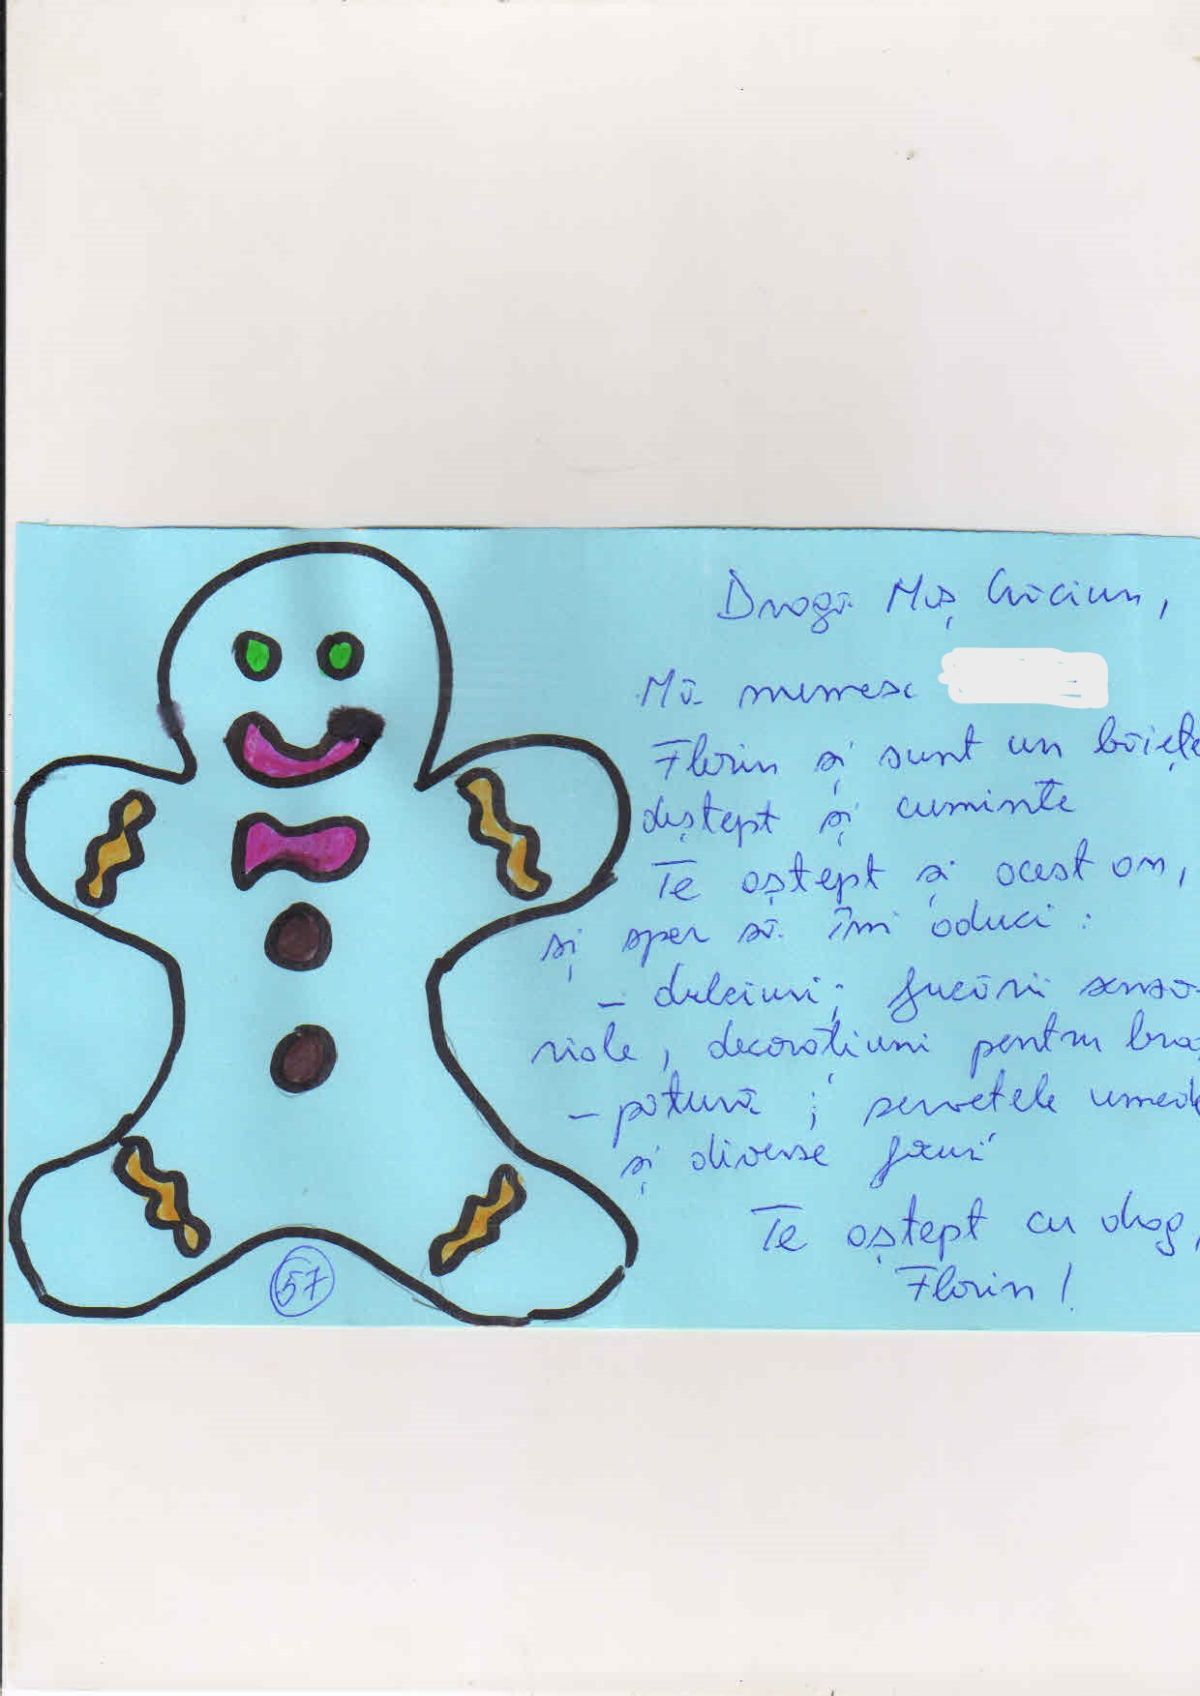 Dragă Moș Crăciun,
Mă numesc
Florin și sunt un băiețe
deștept și cuminte
Te aștept și acest an,
și sper să îmi aduci :
- dulciuri; jucării senzo-
riale, decorațiuni pentru brad,
- pătură ; șervețele umede
și diverse jocuri
Te aștept cu drag,
Florin !
57